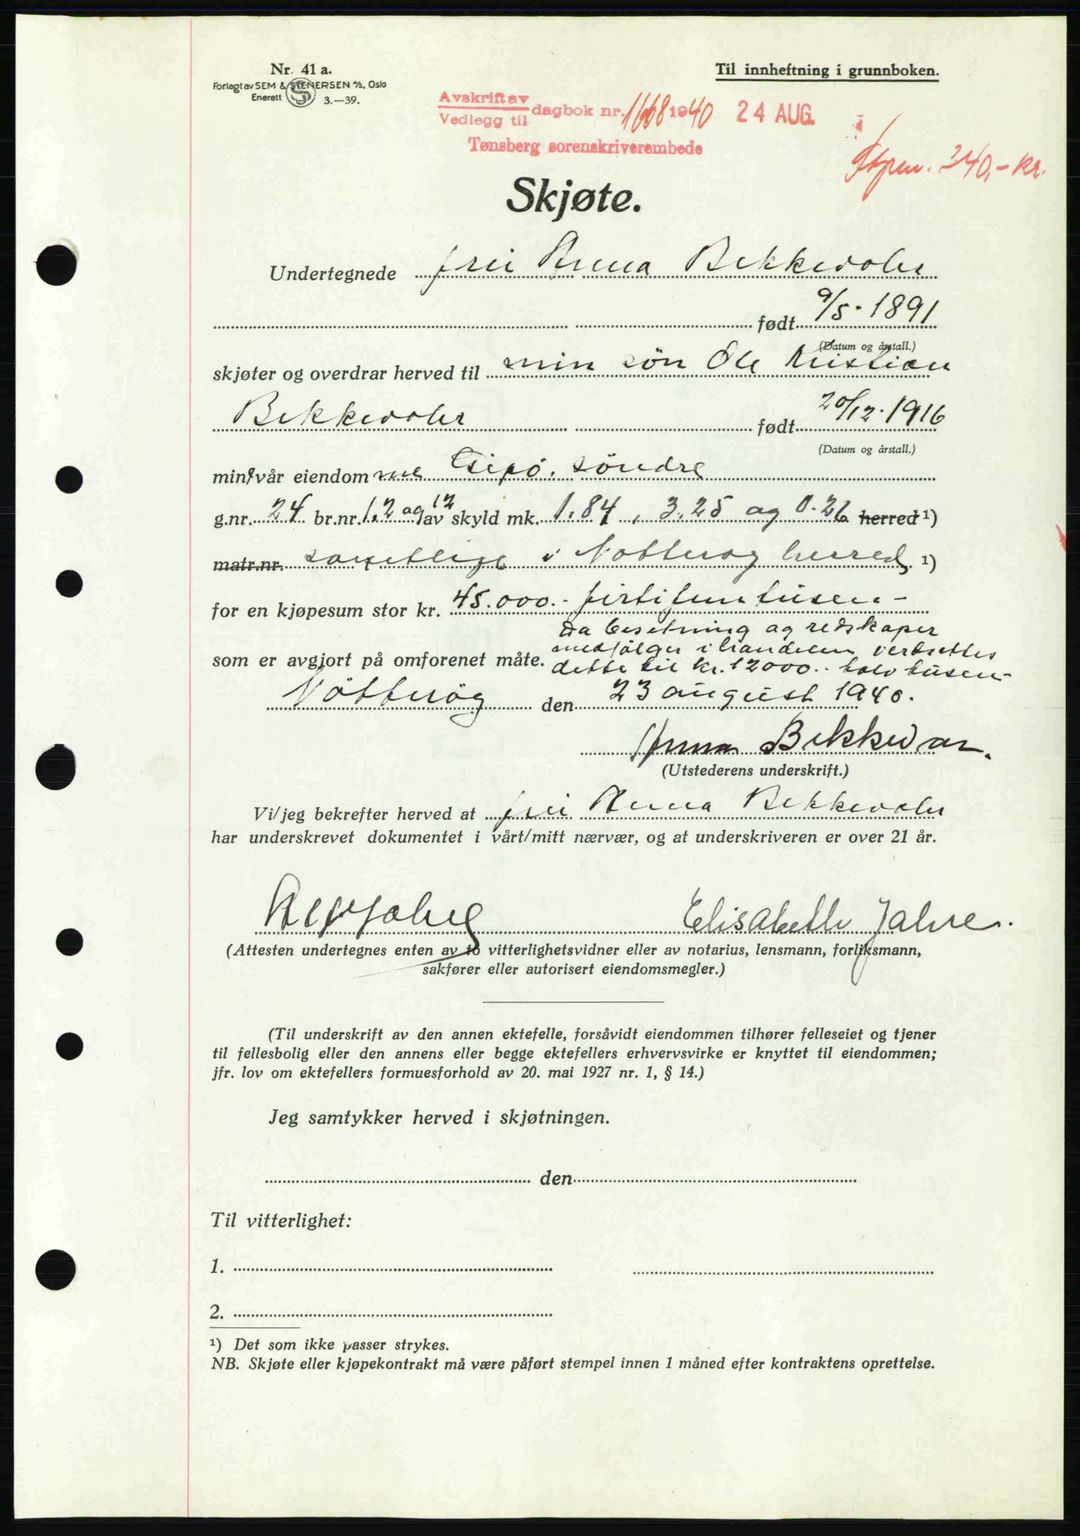 Nr. 41 a.
Forlagt av SEM & STENERSEN A/S, Oslo
Enerett S 3.—39.
Til innheftning i grunnboken.
Avskrift av
Vedlegg til dagbok nr. 1668 1940 24 AUG.
Tønsberg sorenskriverembede
340,- kr.
Skjøte.
Undertegnede frü Anna Bekkevahr
født 9/5-1891
(Datum og årstall.)
skjøter og overdrar herved til min sön Ole Kristian
Bekkevahr født 20/12-1916
(Datum og årstall.)
min/vår eiendom söndre
g.nr. 24 br.nr. 1,2 og 12 av skyld mk. 1.84, 3.25 og 0.26 herred ¹)
matr.nr. samtlige i Nötteröy herred ¹)
for en kjøpesum stor kr. 45.000.- förtifemtusen -
Da besetning og redskaper
medfölger i handelen verdsettes
som er avgjort på omforenet måte. dette til kr. 12000.- tolv tusen-
Nötteröy den 23 august 1940.
Anna Bekkevar.
(Utstederens underskrift.)
Vi/jeg bekrefter herved at frü Anna Bekkevahr
har underskrevet dokumentet i vårt/mitt nærvær, og at underskriveren er over 21 år.
Elisabeth Jahre.
(Attesten undertegnes enten av to vitterlighetsvidner eller av notarius, lensmann, forliksmann,
sakfører eller autorisert eiendomsmegler.)
(Til underskrift av den annen ektefelle, forsåvidt eiendommen tilhører felleseiet og tjener
til fellesbolig eller den annens eller begge ektefellers erhvervsvirke er knyttet til eiendommen;
jfr. lov om ektefellers formuesforhold av 20. mai 1927 nr. 1, § 14.)
Jeg samtykker herved i skjøtningen.
den
Til vitterlighet:
1.
2.
¹) Det som ikke passer strykes.
NB. Skjøte eller kjøpekontrakt må være påført stempel innen 1 måned efter kontraktens oprettelse.